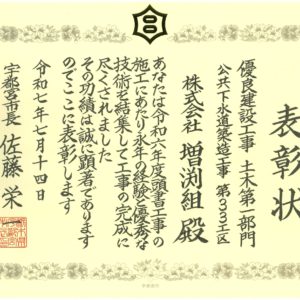 表彰状
優良建設工事 土木第一部門
公共下水道築造工事 第33工区
株式会社 増渕組 殿
あなたは令和六年度頭書工事の
施工にあたり永年の経験と優秀な
技術を結集して工事の完成に
尽くされました
その功績は誠に顕著であります
のでここに表彰します
令和七年七月十四日
宇都宮市長 佐藤栄一